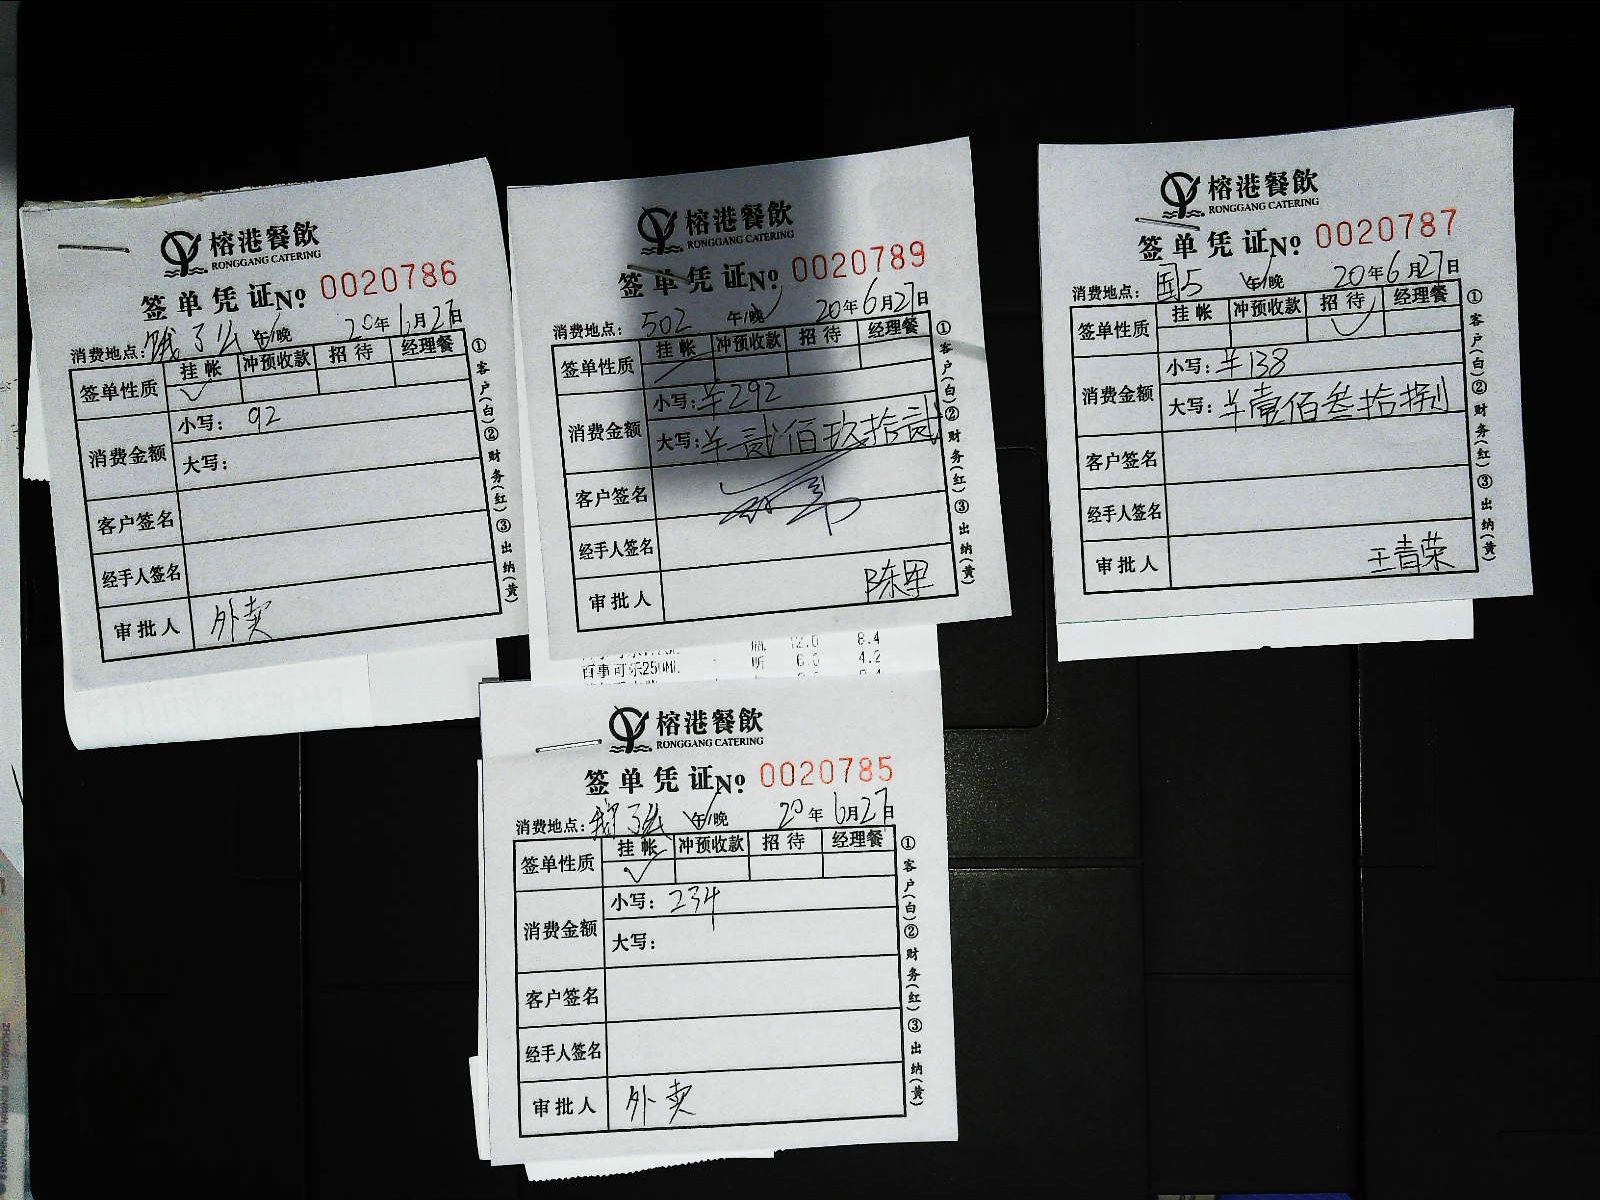 榕港餐飲
RONGGANG CATERING
签单凭证№ 0020786
消费地点：饿了么 午/晚 20年6月27日
签单性质 挂帐 冲预收款 招待 经理餐
✓
消费金额 小写：92
大写：
客户签名
经手人签名
审批人 外卖
①客户(白)②财务(红)③出纳(黄)
榕港餐飲
RONGGANG CATERING
签单凭证№ 0020789
消费地点：502 午/晚 20年6月27日
签单性质 挂帐 冲预收款 招待 经理餐
消费金额 小写：¥292
大写：¥贰佰玖拾贰
客户签名
经手人签名
审批人 陈军
①客户(白)②财务(红)③出纳(黄)
瓶 12.0 8.4
百事可乐250ML 听 6.0 4.2
榕港餐飲
RONGGANG CATERING
签单凭证№ 0020787
消费地点：国5 午/晚 20年6月27日
签单性质 挂帐 冲预收款 招待 经理餐
✓
消费金额 小写：¥138
大写：¥壹佰叁拾捌
客户签名
经手人签名
审批人 王青荣
①客户(白)②财务(红)③出纳(黄)
榕港餐飲
RONGGANG CATERING
签单凭证№ 0020785
消费地点：饿了么 午/晚 20年6月27日
签单性质 挂帐 冲预收款 招待 经理餐
✓
消费金额 小写：234
大写：
客户签名
经手人签名
审批人 外卖
①客户(白)②财务(红)③出纳(黄)